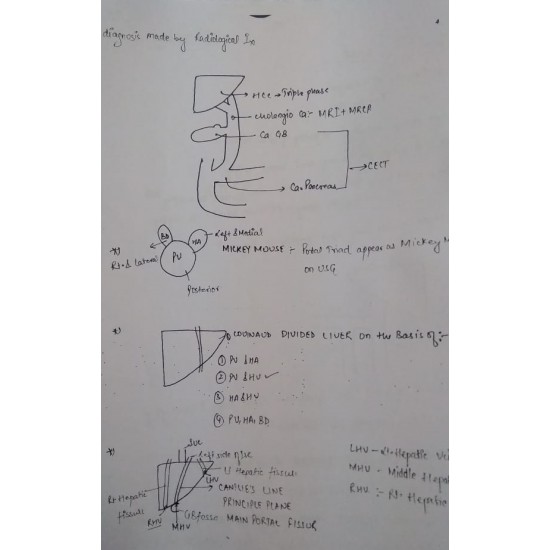 diagnosis made by Radiological Ix
HCC → Triple phase
cholangio Ca:- MRI + MRCP
Ca GB
CECT
Ca. Pancreas
BD
HA
PV
Left & Medial
Rt. & Lateral
Posterior
MICKEY MOUSE :- Portal Triad appear as Mickey M
on USG
COUINAUD DIVIDED LIVER on the Basis of:-
① PV & HA
② PV & HV ✓
③ HA & HV
④ PV, HA, BD
IVC
Left side
Hepatic fissure
LHV
Rt Hepatic
fissure
RHV
MHV
GB fossa
CANTLIE'S LINE
PRINCIPLE PLANE
MAIN PORTAL FISSUR
LHV - Hepatic Vei
MHV - Middle Hepat
RHV :- Rt- Hepatic